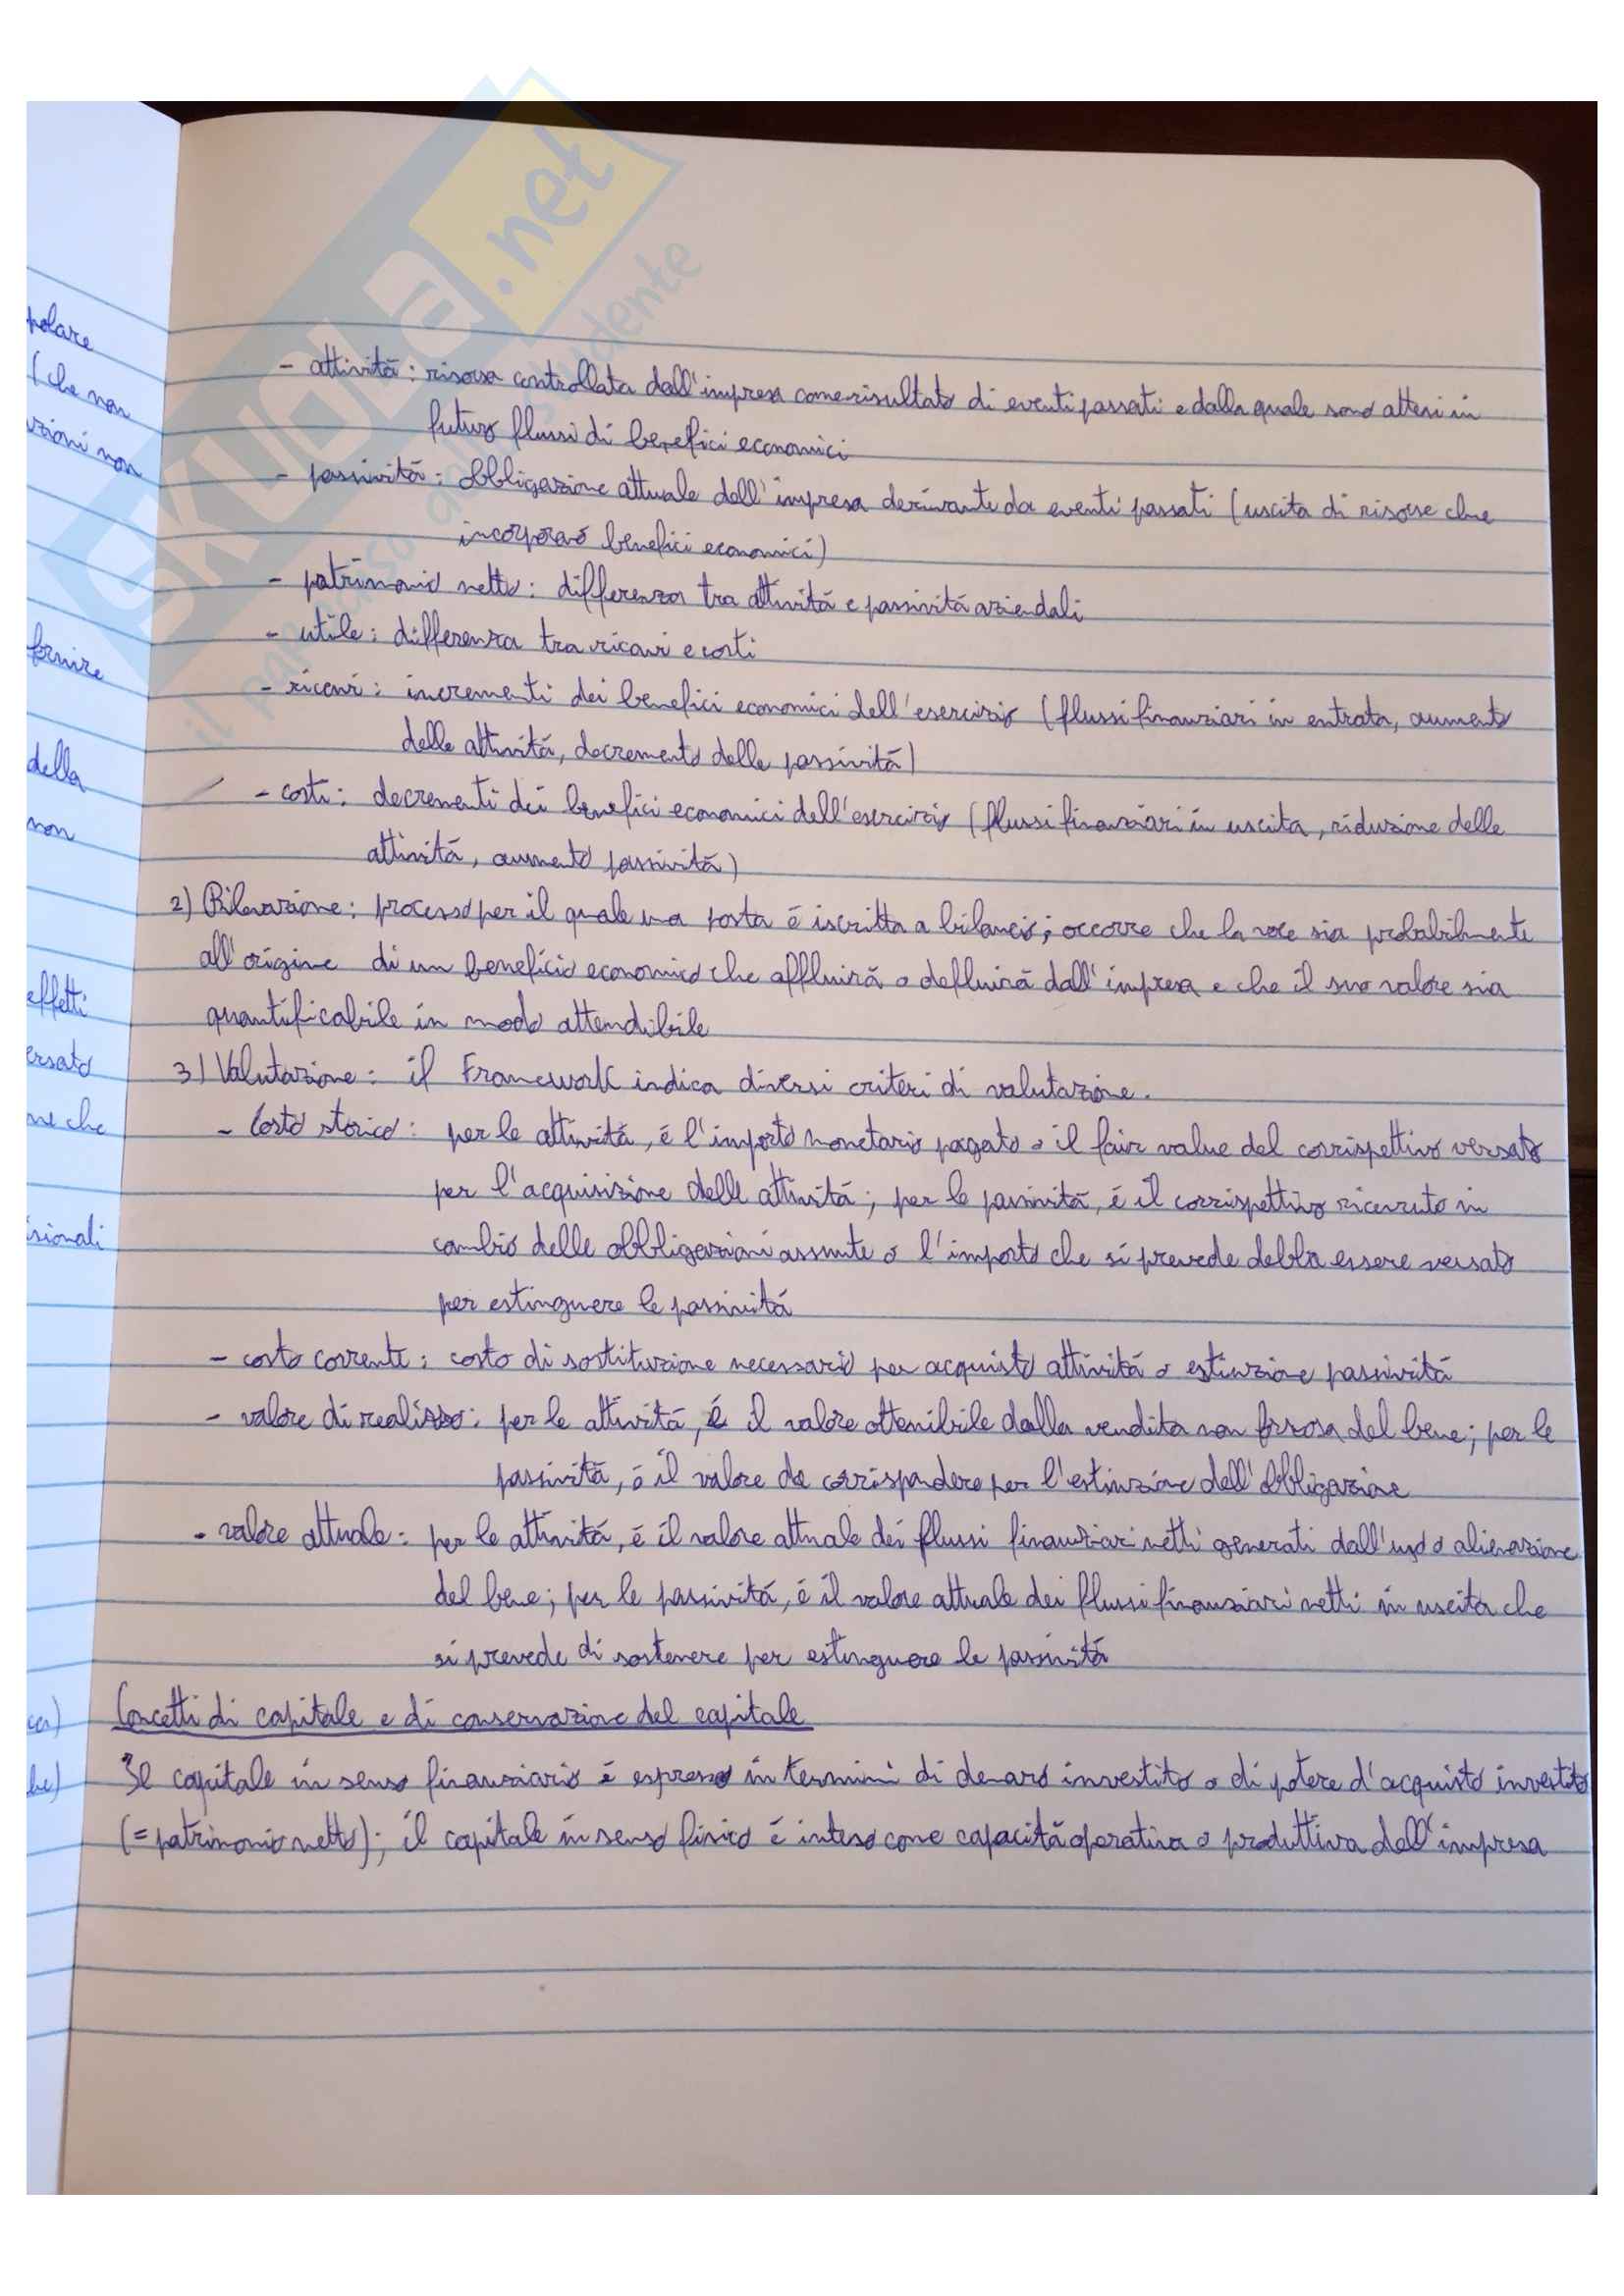 skuola.net
il paradiso dello studente
polare
(che non
uzioni non
fornire
della
non
effetti
ersato
ne che
isionali
- attività: risorsa controllata dall'impresa come risultato di eventi passati e dalla quale sono attesi in
futuro flussi di benefici economici
- passività: obbligazione attuale dell'impresa derivante da eventi passati (uscita di risorse che
incorporano benefici economici)
- patrimonio netto: differenza tra attività e passività aziendali
- utile: differenza tra ricavi e costi
- ricavi: incrementi dei benefici economici dell'esercizio (flussi finanziari in entrata, aumento
delle attività, decremento delle passività)
- costi: decrementi dei benefici economici dell'esercizio (flussi finanziari in uscita, riduzione delle
attività, aumento passività)
2) Rilevazione: processo per il quale una posta è iscritta a bilancio; occorre che la voce sia probabilmente
all'origine di un beneficio economico che affluirà o defluirà dall'impresa e che il suo valore sia
quantificabile in modo attendibile
3) Valutazione: il Framework indica diversi criteri di valutazione.
- Costo storico: per le attività, è l'importo monetario pagato o il fair value del corrispettivo versato
per l'acquisizione delle attività; per le passività, è il corrispettivo ricevuto in
cambio delle obbligazioni assunte o l'importo che si prevede debba essere versato
per estinguere le passività
- costo corrente: costo di sostituzione necessario per acquisto attività o estinzione passività
- valore di realizzo: per le attività, è il valore ottenibile dalla vendita non forzosa del bene; per le
passività, è il valore da corrispondere per l'estinzione dell'obbligazione
- valore attuale: per le attività, è il valore attuale dei flussi finanziari netti generati dall'uso o alienazione
del bene; per le passività, è il valore attuale dei flussi finanziari netti in uscita che
si prevede di sostenere per estinguere le passività
Concetti di capitale e di conservazione del capitale
Il capitale in senso finanziario è espresso in termini di denaro investito o di potere d'acquisto investito
(= patrimonio netto); il capitale in senso fisico è inteso come capacità operativa o produttiva dell'impresa